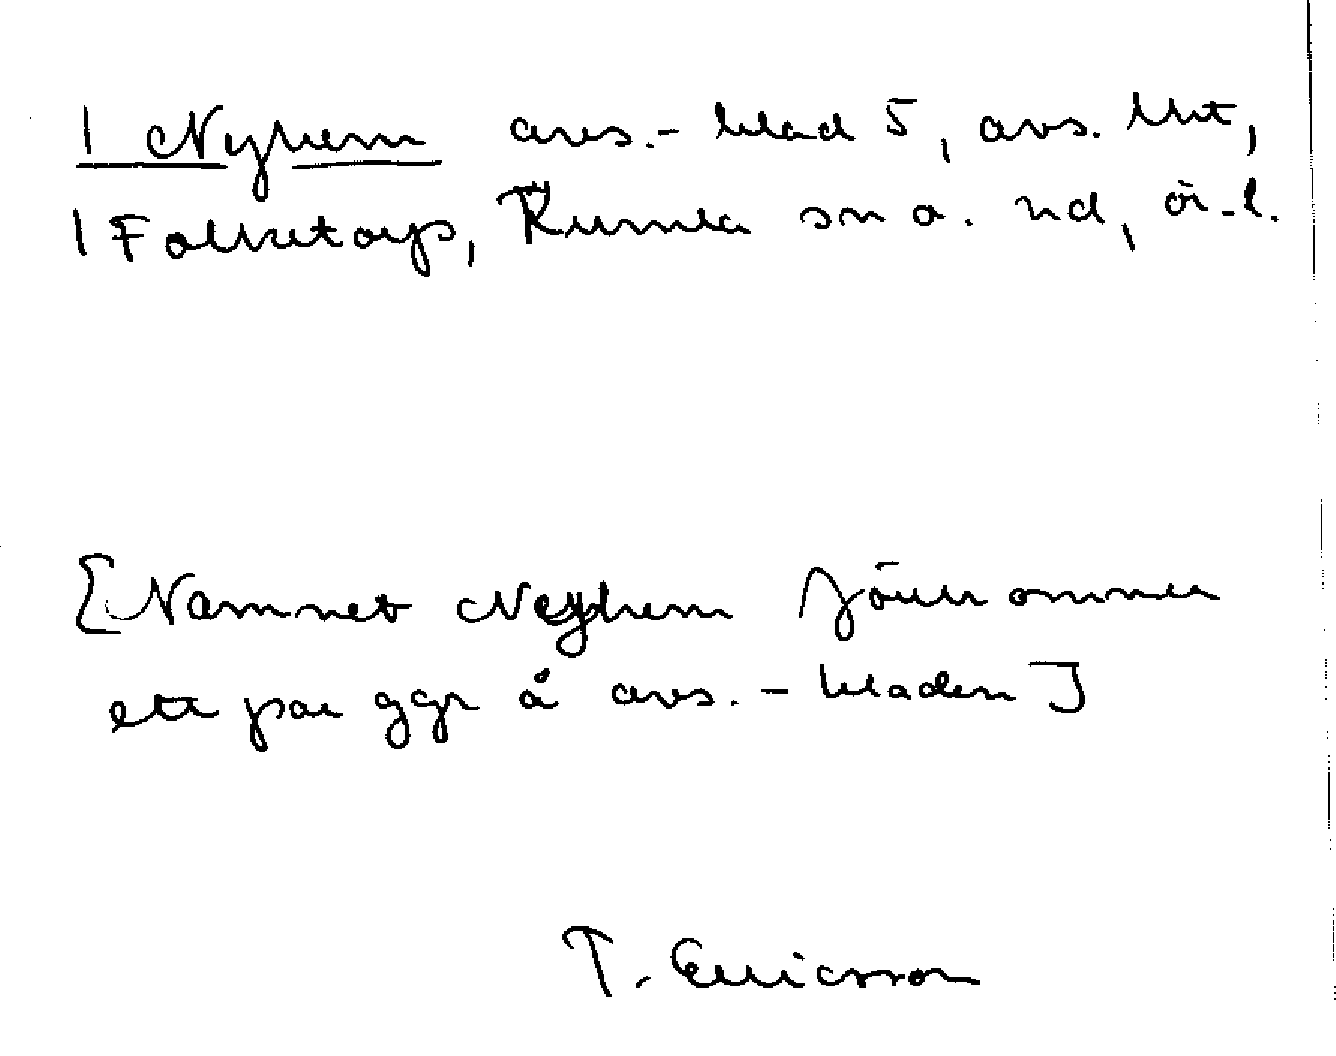 1 Nyhem avs.-blad 5, avs. lht,
1 Folketorp, Kumla sn o. hd, ör. l.
[Namnet Nyhem förekommer
ett par ggr å avs.-bladen]
T. Ericsson